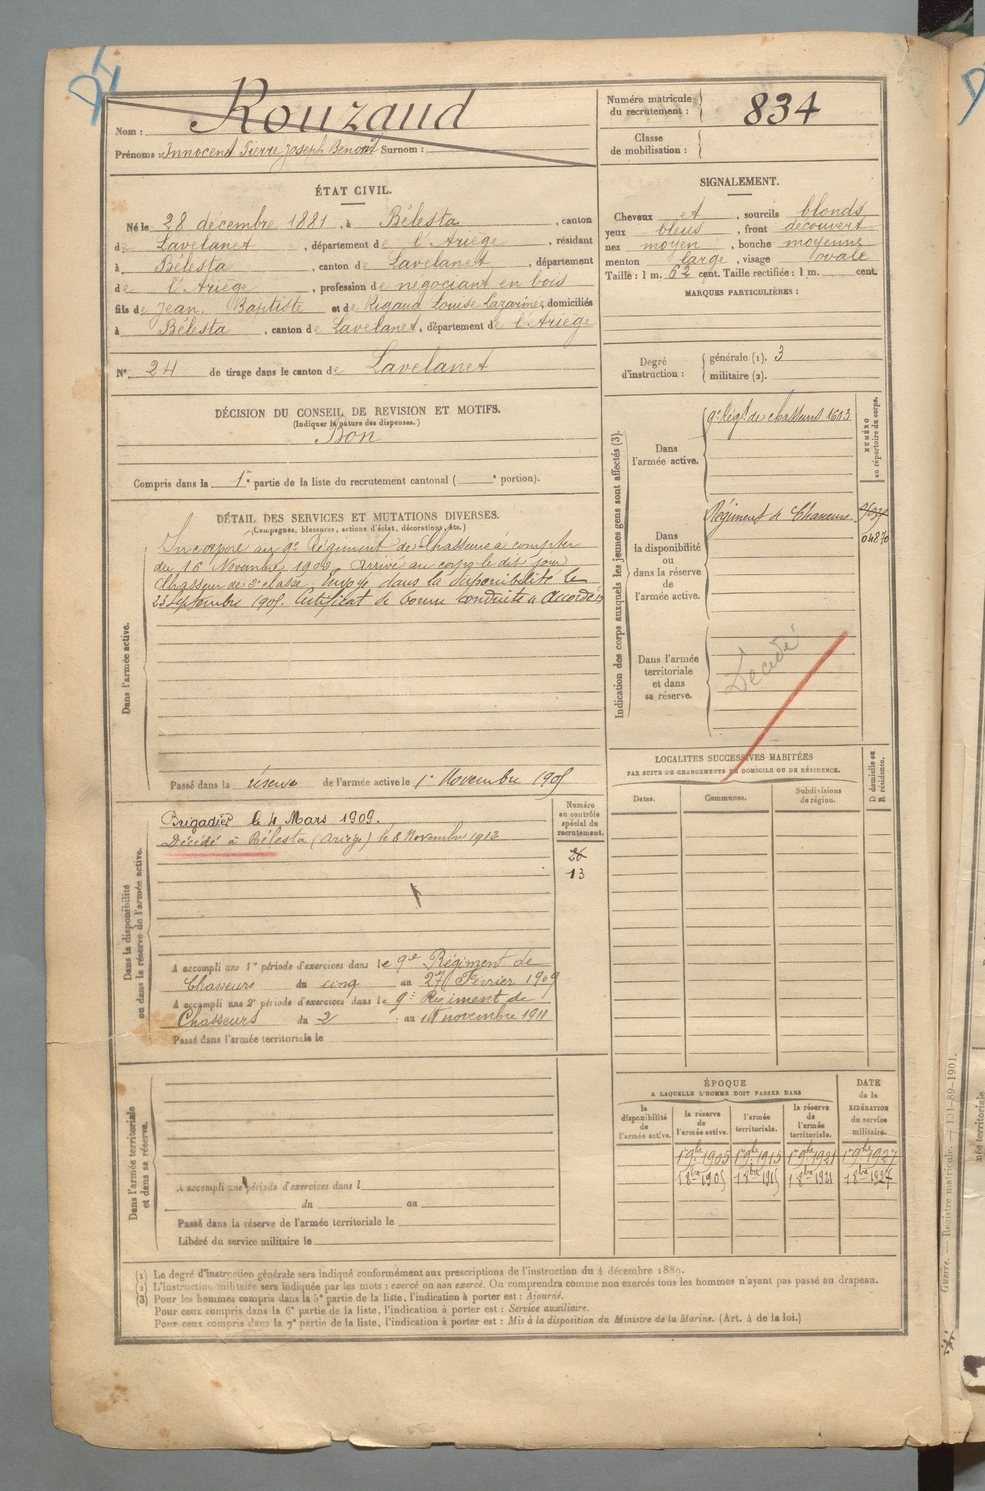 Nom : Rouzaud
Prénoms : Innocent Pierre Joseph Benoit Surnom :
Numéro matricule du recrutement : 834
Classe de mobilisation :
ÉTAT CIVIL.
Né le 28 décembre 1881, à Bélesta, canton
de Lavelanet, département de l'Ariège, résidant
à Bélesta, canton de Lavelanet, département
de l'Ariège, profession de négociant en bois
fils de Jean Baptiste et de Rigaud Louise Lazarine, domiciliés
à Bélesta, canton de Lavelanet, département de l'Ariège
N° 24 de tirage dans le canton de Lavelanet
SIGNALEMENT.
Cheveux et, sourcils blonds
yeux bleus, front découvert
nez moyen, bouche moyenne
menton large, visage ovale
Taille : 1 m. 62 cent. Taille rectifiée : 1 m. cent.
MARQUES PARTICULIÈRES :
Degré d'instruction : générale (1). 3
militaire (2).
DÉCISION DU CONSEIL DE REVISION ET MOTIFS.
(Indiquer la nature des dispenses.)
Bon
Compris dans la 1re partie de la liste du recrutement cantonal ( e portion).
DÉTAIL DES SERVICES ET MUTATIONS DIVERSES.
(Campagnes, blessures, actions d'éclat, décorations, etc.)
Dans l'armée active.
Incorporé au 9e Régiment de Chasseurs à compter
du 16 Novembre 190 Arrivé au corps le dit jour
Chasseur de 2e classe. Envoyé dans la disponibilité le
23 Septembre 1905. Certificat de bonne conduite "Accordé"
Passé dans la réserve de l'armée active le 1er Novembre 1905
Indication des corps auxquels les jeunes gens sont affectés (3).
NUMÉRO au répertoire du corps.
Dans l'armée active.
9e Régt de chasseurs 1603
Dans la disponibilité ou dans la réserve de l'armée active.
Régiment de Chasseurs
04870
Dans l'armée territoriale et dans sa réserve.
Décédé
LOCALITES SUCCESSIVES HABITÉES
PAR SUITE DE CHANGEMENTS DE DOMICILE OU DE RÉSIDENCE.
Dates.
Communes.
Subdivisions de région.
D domicile ou R résidence.
Dans la disponibilité ou dans la réserve de l'armée active.
Numéro au contrôle spécial du recrutement.
Brigadier le 4 Mars 1909.
Décédé à Bélesta (Ariège) le 8 Novembre 1912
26
13
A accompli une 1re période d'exercices dans le 9e Régiment de
Chasseurs du cinq au 27 Février 1909
A accompli une 2e période d'exercices dans le 9e Régiment de
Chasseurs du 2 au novembre 1911
Passé dans l'armée territoriale le
Dans l'armée territoriale et dans sa réserve.
A accompli une période d'exercices dans l
du au
Passé dans la réserve de l'armée territoriale le
Libéré du service militaire le
ÉPOQUE
A LAQUELLE L'HOMME DOIT PASSER DANS
DATE de la LIBÉRATION du service militaire.
la disponibilité de l'armée active.
la réserve de l'armée active.
l'armée territoriale.
la réserve de l'armée territoriale.
1 9bre 1905 1 9bre 1915 1 9bre 1921 1 9bre 1927
1 8bre 1905 1 8bre 1915 1 8bre 1921 1 8bre 1927
(1) Le degré d'instruction générale sera indiqué conformément aux prescriptions de l'instruction du 4 décembre 1889.
(2) L'instruction militaire sera indiquée par les mots : exercé ou non exercé. On comprendra comme non exercés tous les hommes n'ayant pas passé au drapeau.
(3) Pour les hommes compris dans la 5e partie de la liste, l'indication à porter est : Ajourné.
Pour ceux compris dans la 6e partie de la liste, l'indication à porter est : Service auxiliaire.
Pour ceux compris dans la 7e partie de la liste, l'indication à porter est : Mis à la disposition du Ministre de la Marine. (Art. 4 de la loi.)
Guerre. — Registre matricule. — 131-89-1901.